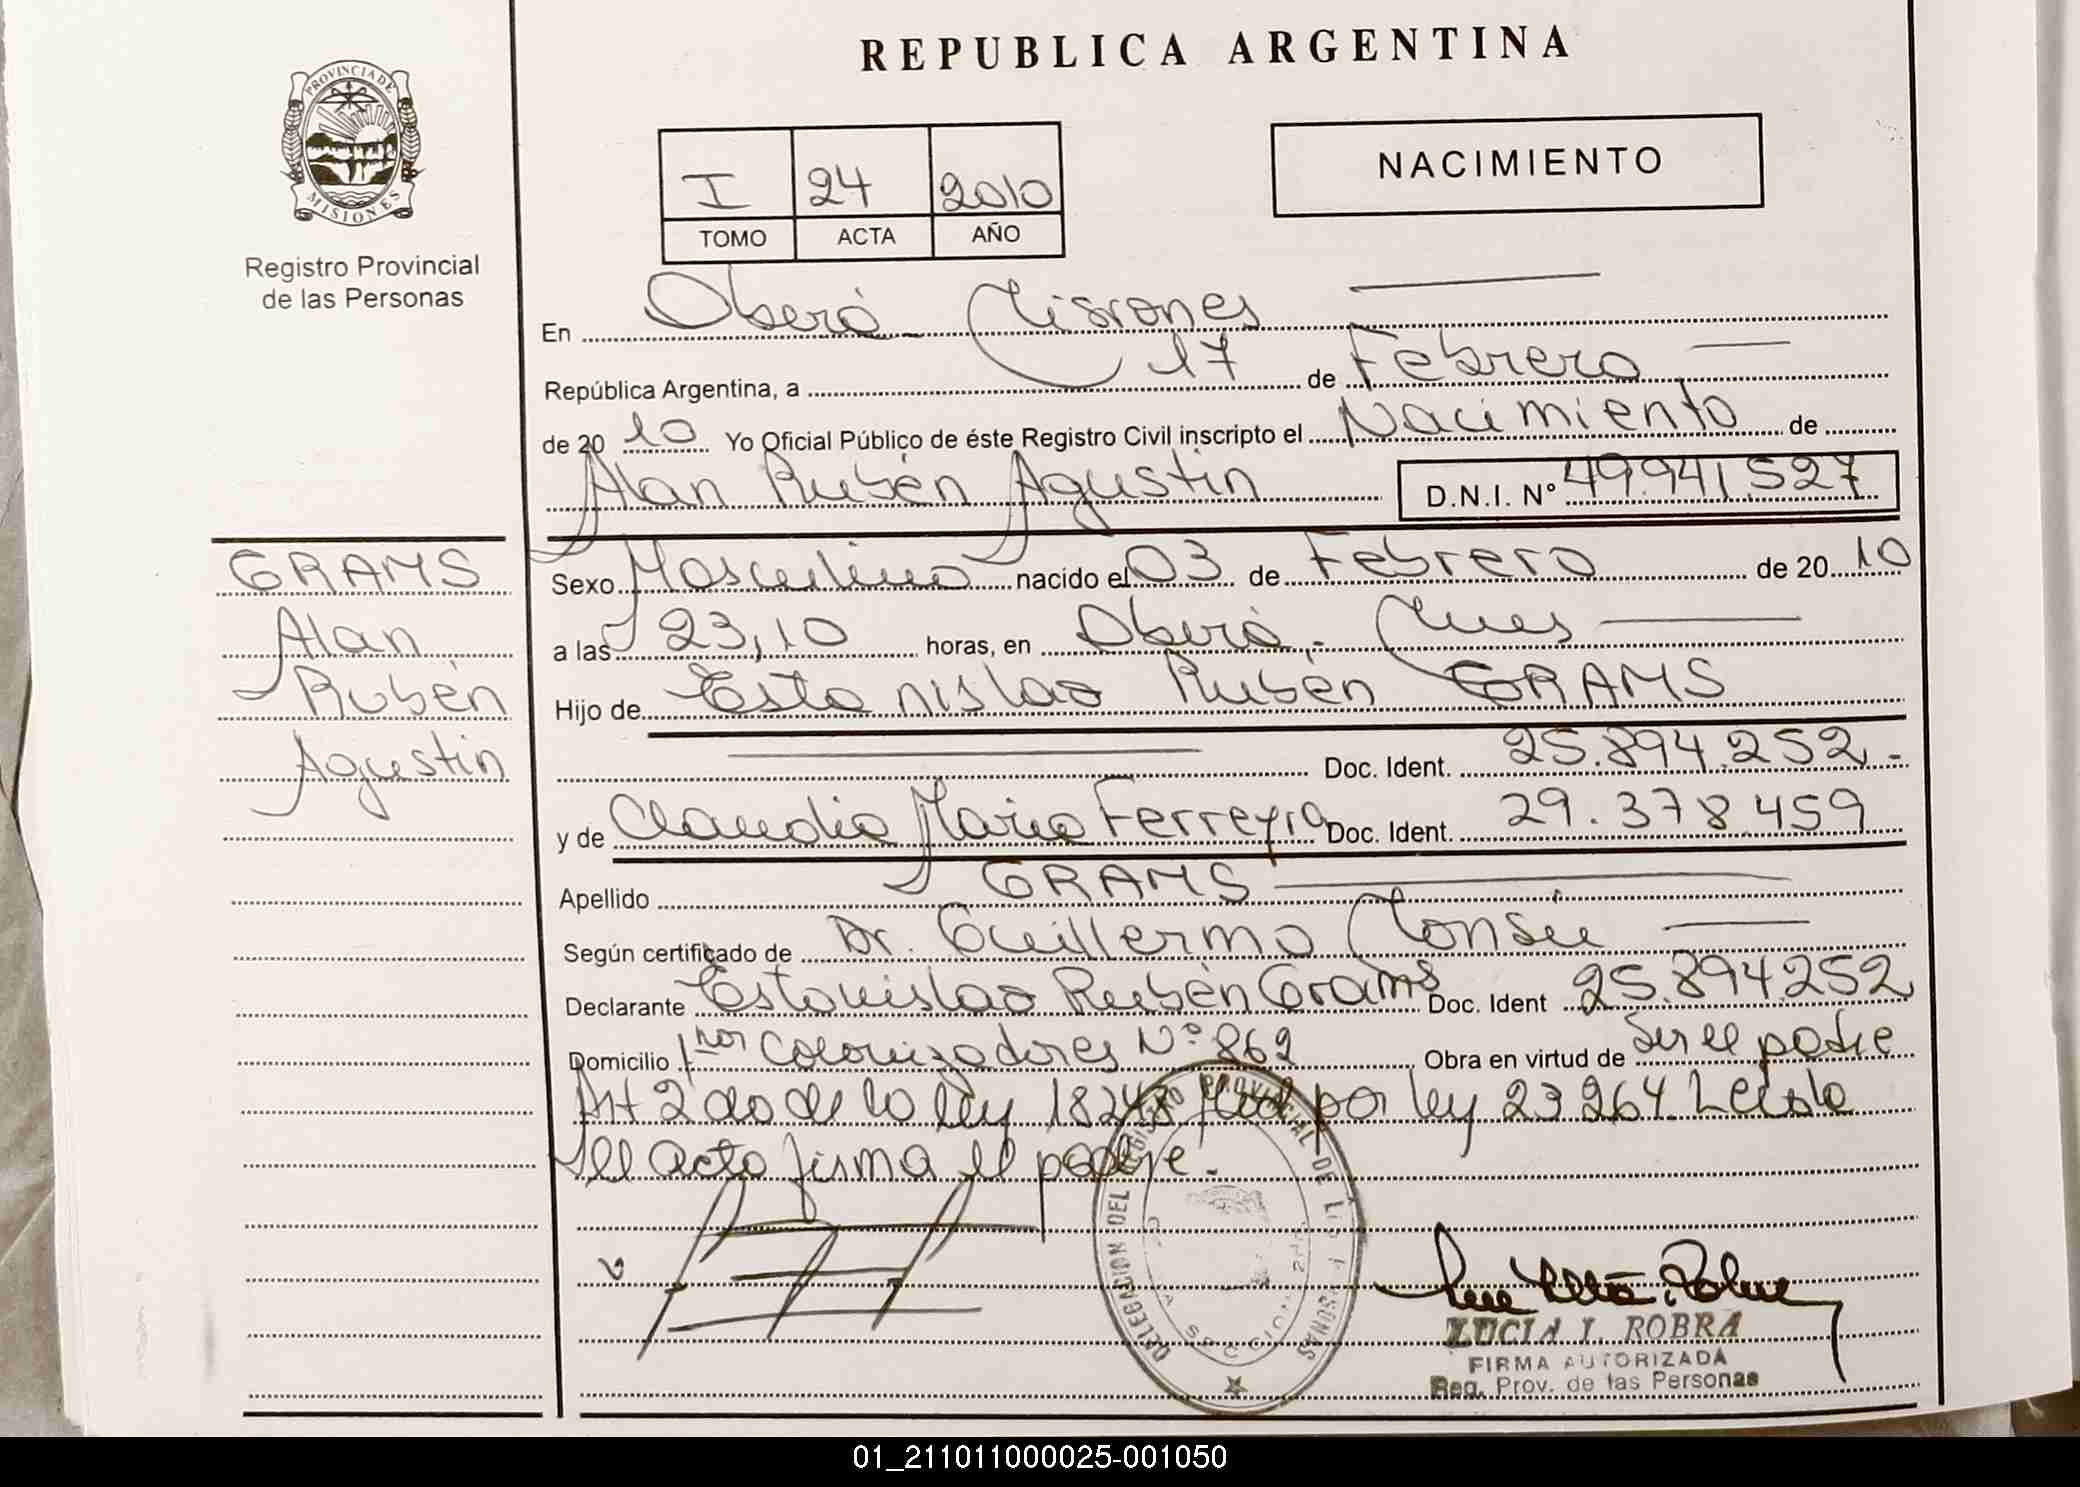 REPUBLICA ARGENTINA
PROVINCIA DE
MISIONES
Registro Provincial
de las Personas
I 24 2010
TOMO ACTA AÑO
NACIMIENTO
En Oberá - Misiones
República Argentina, a 17 de Febrero
de 2010 Yo Oficial Público de éste Registro Civil inscripto el Nacimiento de
Alan Rubén Agustin D.N.I. Nº 49.941.527
GRAMS
Alan
Rubén
Agustin
Sexo Masculino nacido el 03 de Febrero de 2010
a las 23,10 horas, en Oberá, - Mnes
Hijo de Estanislao Rubén GRAMS
Doc. Ident. 25.894.252.-
y de Claudia Maria Ferreyra Doc. Ident. 29.378.459
Apellido GRAMS
Según certificado de Dr. Guillermo
Declarante Estanislao Rubén Grams Doc. Ident 25.894.252
Domicilio Colonizadores Nº 862 Obra en virtud de ser el padre
Art 2do de la ley 18248 por ley 23264. Leida
el acto firma el padre.
DELEGACION DEL REGISTRO PROVINCIAL DE LAS PERSONAS
LUCIA I. ROBRA
FIRMA AUTORIZADA
Reg. Prov. de las Personas
01_211011000025-001050